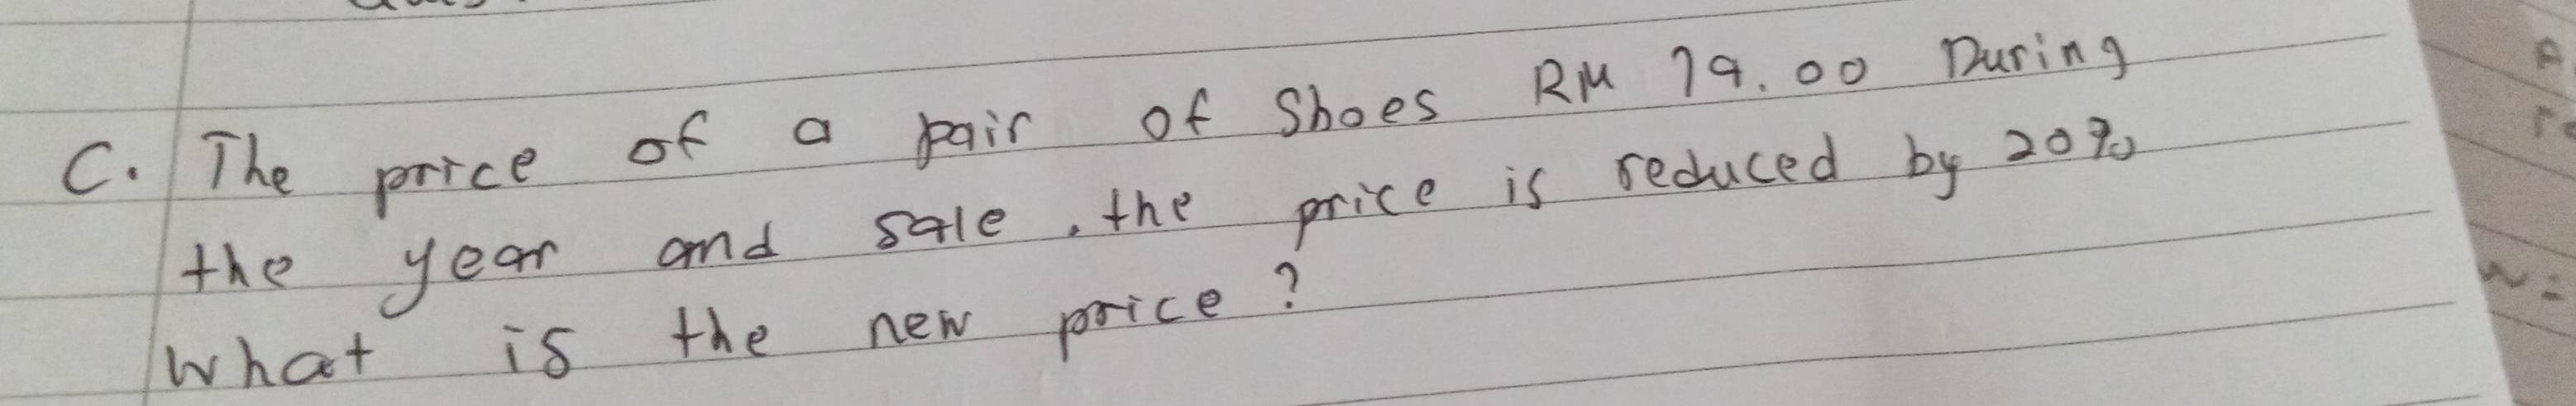 C. The price of a pair of Shoes RM 79.00 During
the year and sale. the price is reduced by 20%
What is the new price?